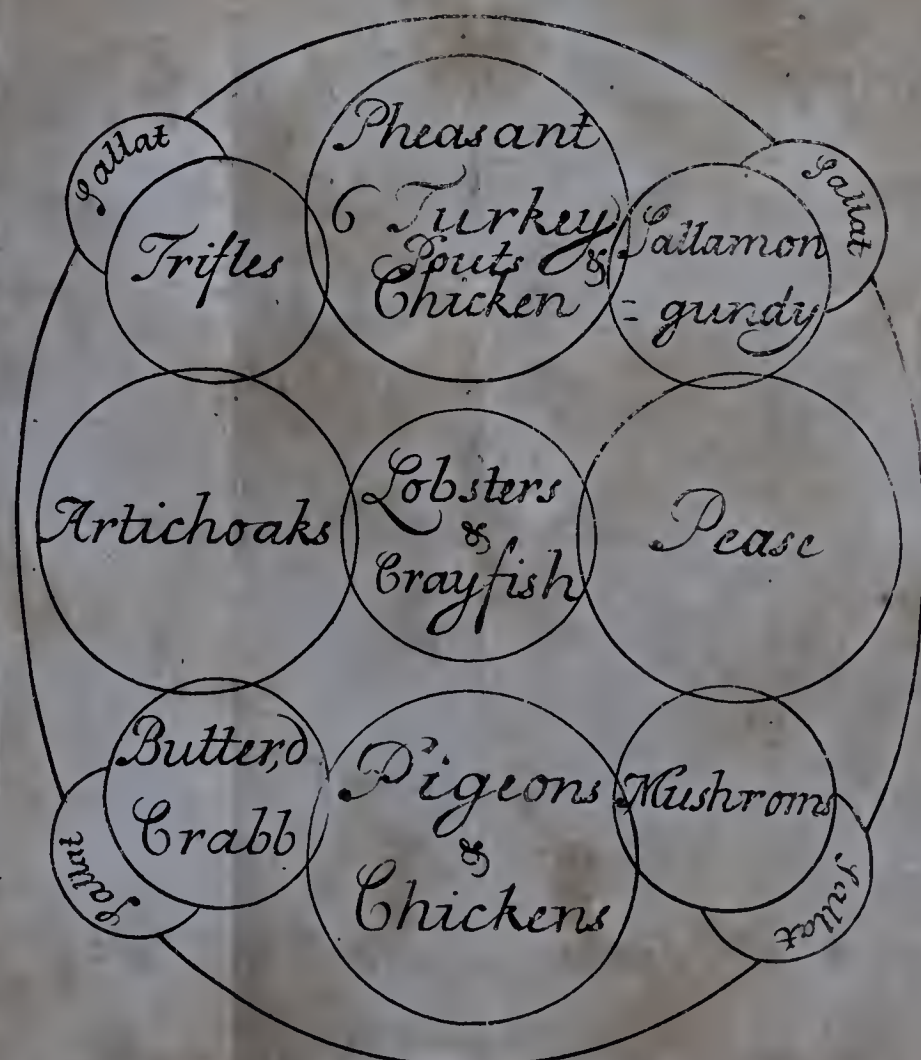 Sallat
Pheasant
6 Turkey
Pouts &
Chicken
Sallat
Trifles
Sallamon
= gundy
Artichoaks
Lobsters
&
Crayfish
Pease
Butter,d
Crabb
Pigeons
&
Chickens
Mushroms
Sallat
Sallat